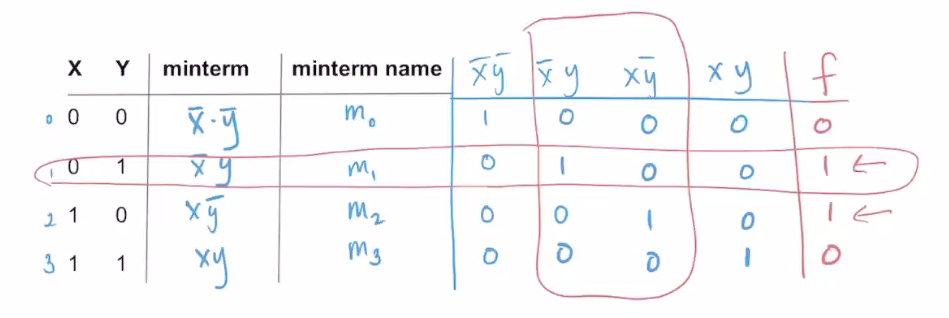 X Y minterm minterm name x̅y̅ x̅y xy̅ xy f
0 0 0 x̅·y̅ m₀ 1 0 0 0 0
1 0 1 x̅y m₁ 0 1 0 0 1 ←
2 1 0 xy̅ m₂ 0 0 1 0 1 ←
3 1 1 xy m₃ 0 0 0 1 0